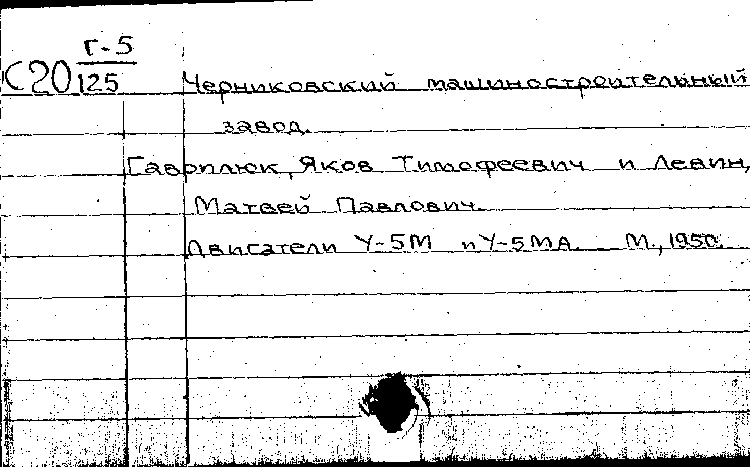 Г-5
С20 125 Черниковский машиностроительный
завод.
Гаврилюк, Яков Тимофеевич и Левин,
Матвей Павлович.
Двигатели У-5М и У-5МА. М., 1950.